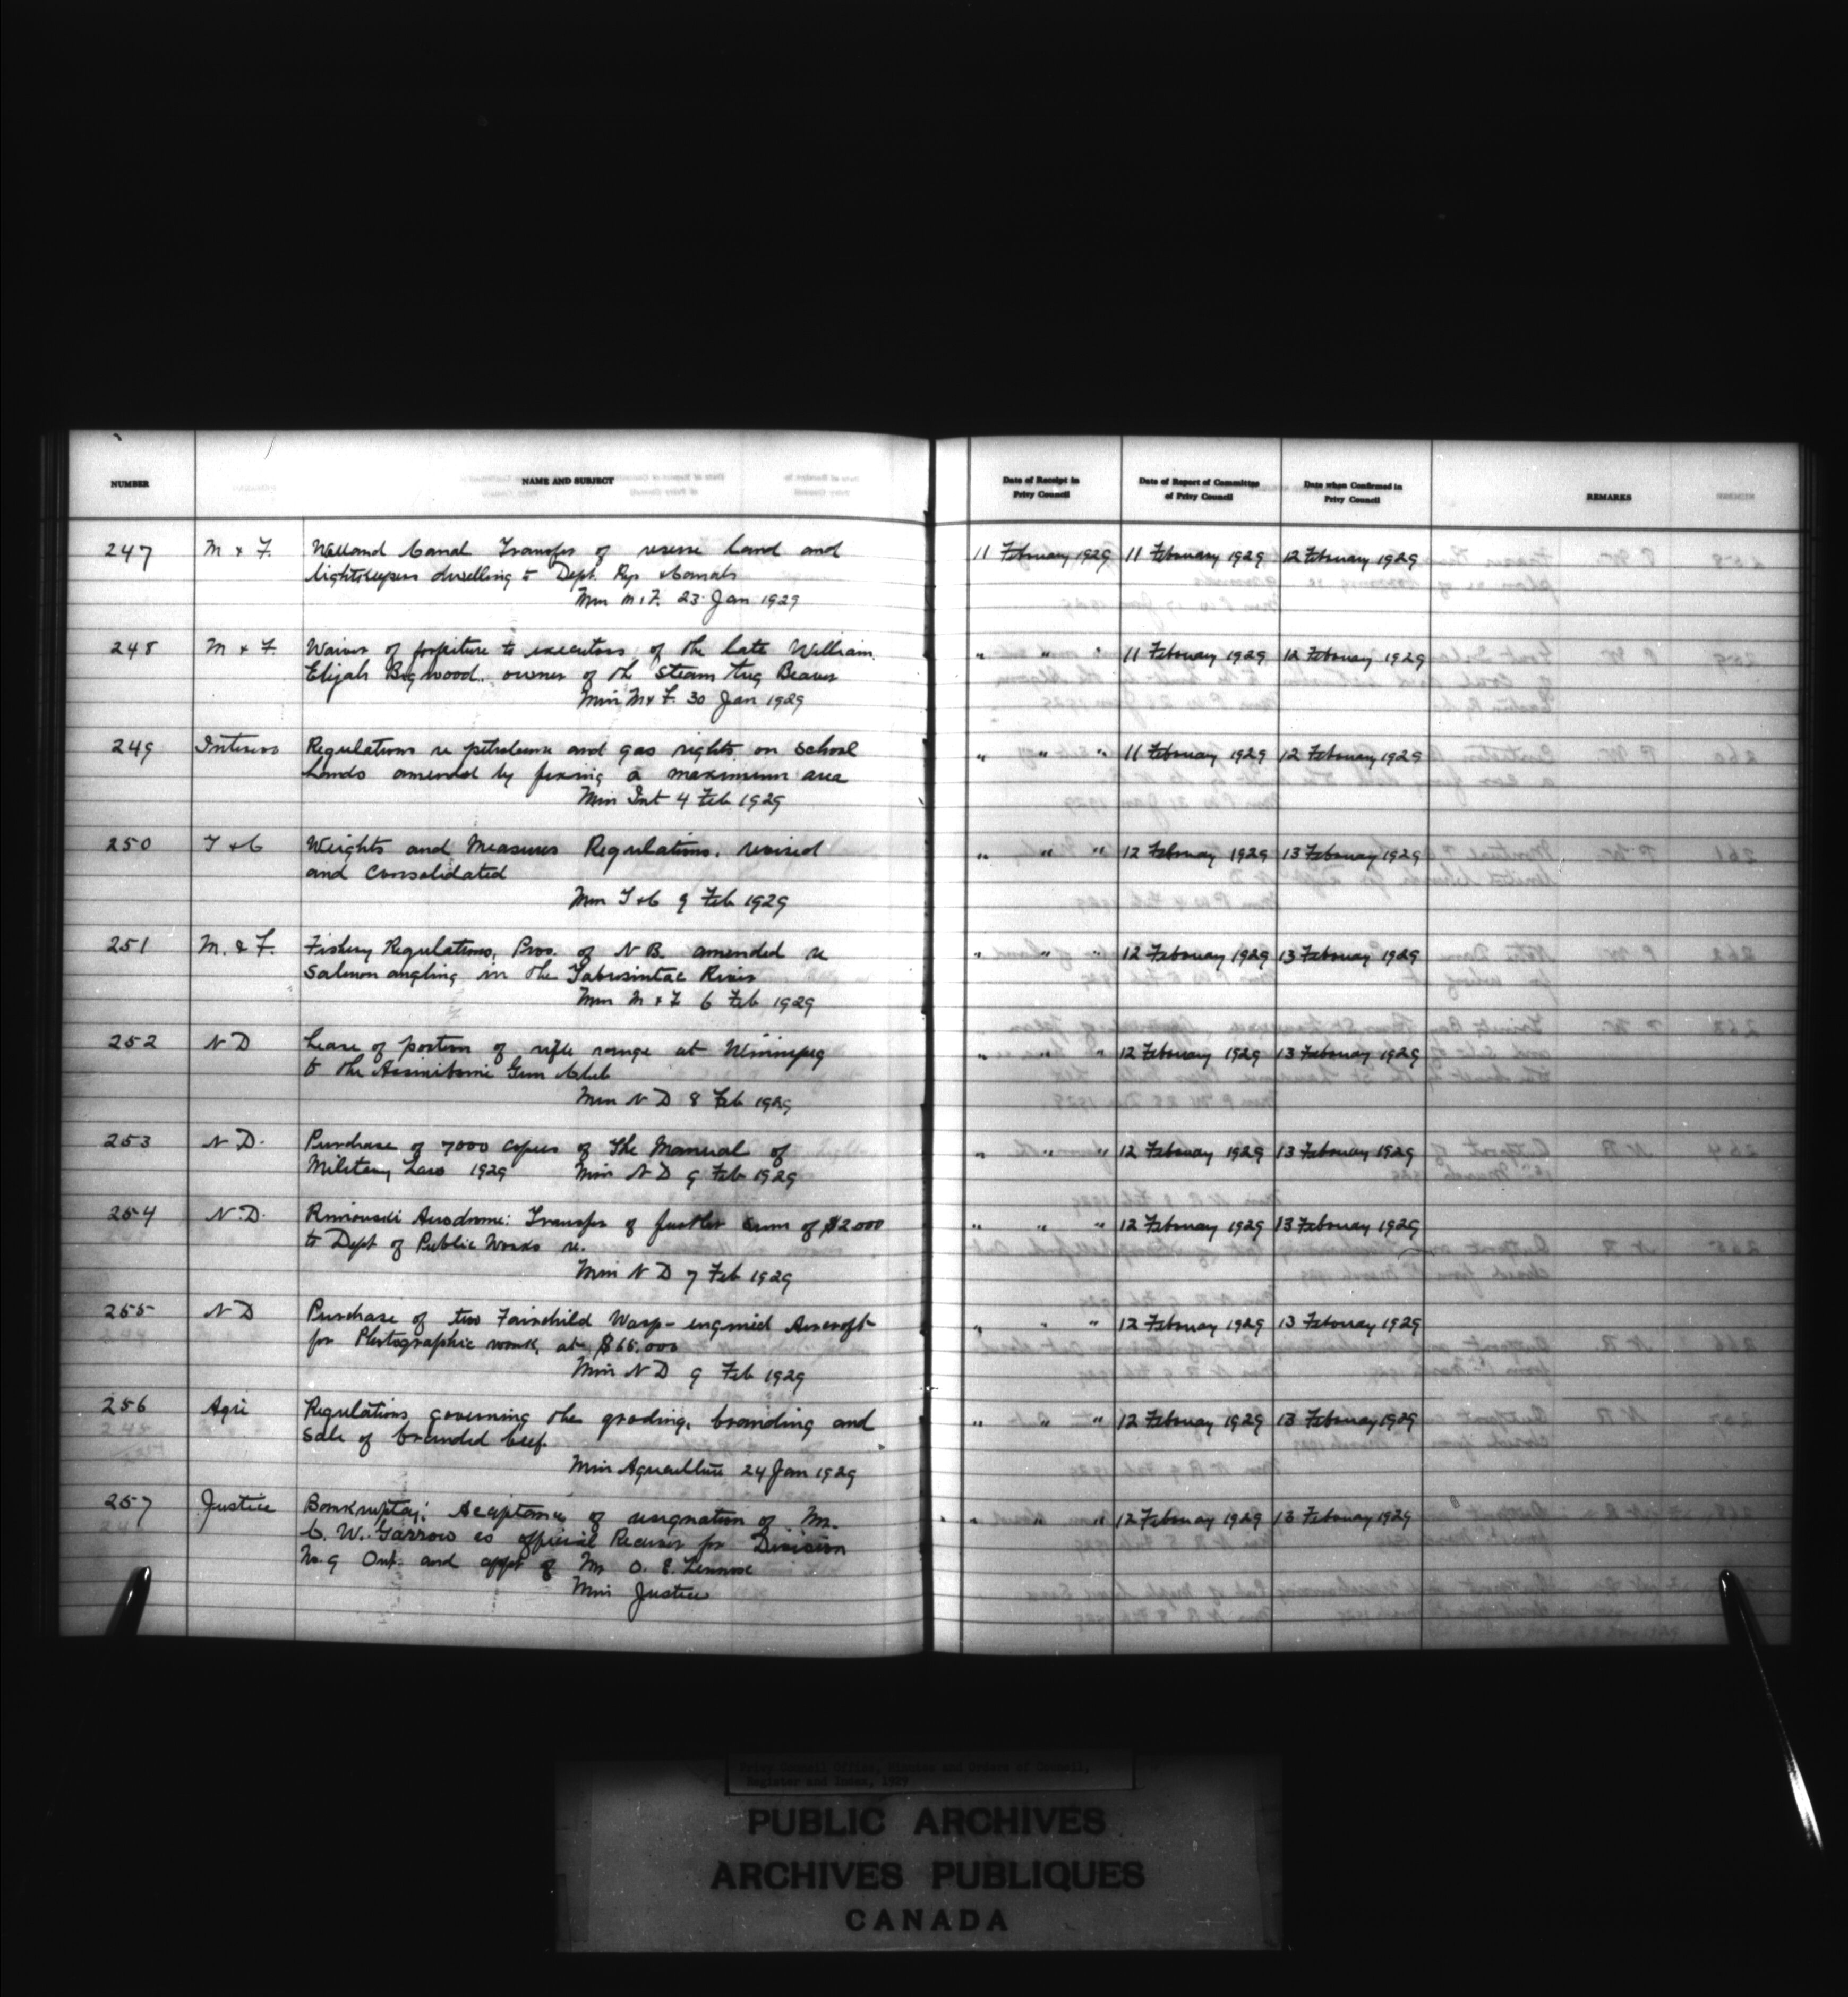 NUMBER
NAME AND SUBJECT
Date of Receipt in
Privy Council
Date of Report of Committee
of Privy Council
Date when Confirmed in
Privy Council
REMARKS
247 M & F. Welland Canal Transfer of reserve land and 11 February 1929 11 February 1929 12 February 1929
lightkeepers dwelling to Dept. Rys & Canals
Min M & F. 23 Jan 1929
248 M & F. Waiver of forfeiture to executors of the late William " " " 11 February 1929 12 February 1929
Elijah Bigwood. owner of the Steam tug Beaver
Min M & F. 30 Jan 1929
249 Interior Regulations re petroleum and gas rights on School " " " 11 February 1929 12 February 1929
Lands amended by fixing a maximum area
Min Int 4 Feb 1929
250 T & C Weights and Measures Regulations, revised " " " 12 February 1929 13 February 1929
and consolidated
Min T & C 9 Feb 1929
251 M. & F. Fishery Regulations, Prov. of N B. amended re " " " 12 February 1929 13 February 1929
Salmon angling in the Tabusintac River
Min M & F 6 Feb 1929
252 N D Lease of portion of rifle range at Winnipeg " " " 12 February 1929 13 February 1929
to the Assiniboine Gun Club
Min N D 8 Feb 1929
253 N D. Purchase of 7000 copies of The Manual of " " " 12 February 1929 13 February 1929
Military Law 1929 Min N D 9 Feb 1929
254 N.D. Rimouski Aerodrome: Transfer of further sum of $2000 " " " 12 February 1929 13 February 1929
to Dept of Public Works re.
Min N D 7 Feb 1929
255 N D Purchase of two Fairchild Wasp-engined Aircraft " " " 12 February 1929 13 February 1929
for Photographic work, at
Min N D 9 Feb 1929
256 Agri Regulations governing the grading, branding and " " " 12 February 1929 13 February 1929
sale of branded beef.
Min Agriculture 24 Jan 1929
257 Justice Bankruptcy: Acceptance of resignation of Mr. " " " 12 February 1929 13 February 1929
C. W. Garrow as official Receiver for Division
No 9 Ont. and appt of Mr O. E. Lennox
Min Justice
Privy Council Office, Minutes and Orders of Council,
Register and Index, 1929
PUBLIC ARCHIVES
ARCHIVES PUBLIQUES
CANADA